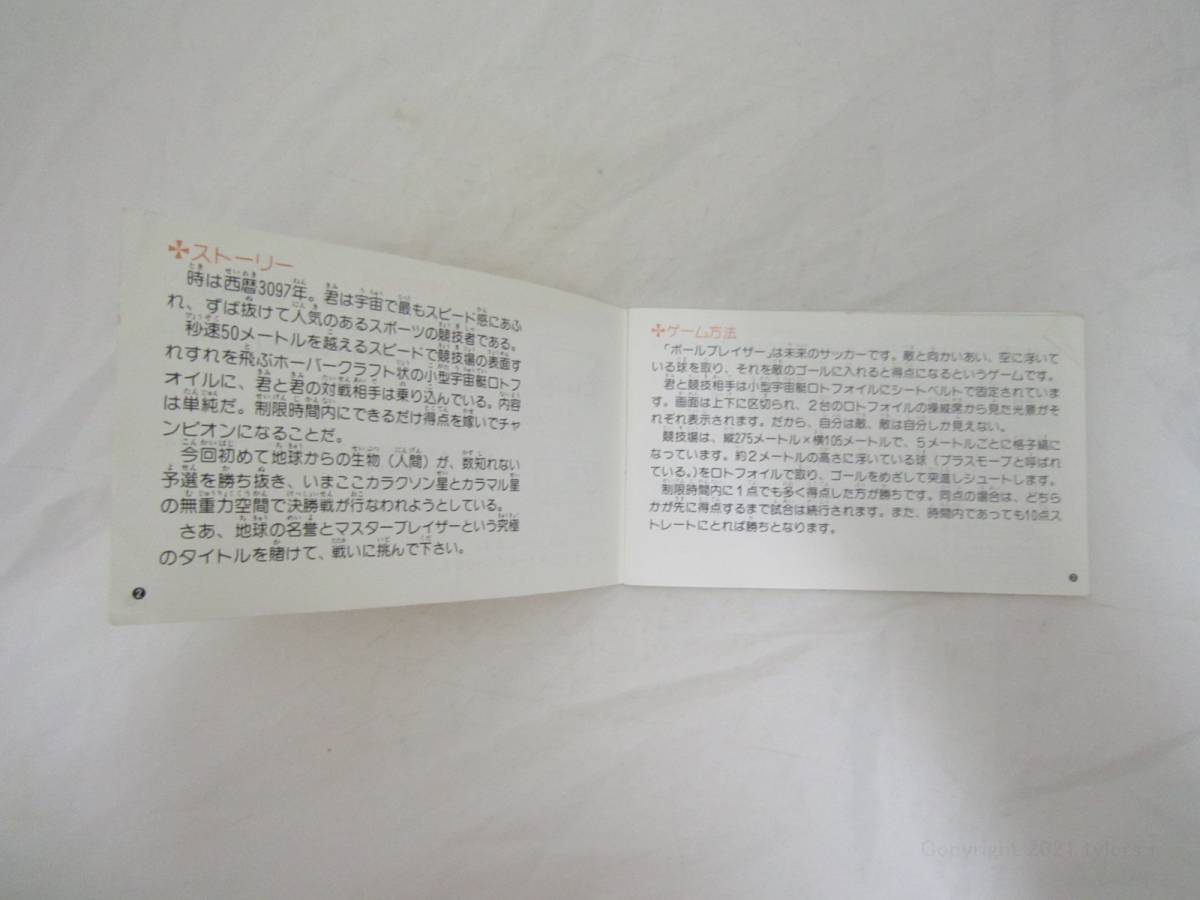 ✚ストーリー
時は西暦3097年。君は宇宙で最もスピード感にあふ
れ、ずば抜けて人気のあるスポーツの競技者である。
秒速50メートルを越えるスピードで競技場の表面す
れすれを飛ぶホーバークラフト状の小型宇宙艇ロトフ
ォイルに、君と君の対戦相手は乗り込んでいる。内容
は単純だ。制限時間内にできるだけ得点を嫁いでチャ
ンピオンになることだ。
今回初めて地球からの生物（人間）が、数知れない
予選を勝ち抜き、いまここカラクソン星とカラマル星
の無重力空間で決勝戦が行なわれようとしている。
さあ、地球の名誉とマスターブレイザーという究極
のタイトルを賭けて、戦いに挑んで下さい。
❷
✚ゲーム方法
「ボールブレイザー」は未来のサッカーです。敵と向かいあい、空に浮いて
いる球を取り、それを敵のゴールに入れると得点になるというゲームです。
君と競技相手は小型宇宙艇ロトフォイルにシートベルトで固定されていま
す。画面は上下に区切られ、2台のロトフォイルの操縦席から見た光景がそ
れぞれ表示されます。だから、自分は敵、敵は自分しか見えない。
競技場は、縦275メートル×横105メートルで、5メートルごとに格子縞に
なっています。約2メートルの高さに浮いている球（プラスモーブと呼ばれ
ている。）をロトフォイルで取り、ゴールをめざして突進しシュートします。
制限時間内に1点でも多く得点した方が勝ちです。同点の場合は、どちら
かが先に得点するまで試合は続行されます。また、時間内であっても10点ス
トレートにとれば勝ちとなります。
❸
Copyright 2021 tylors